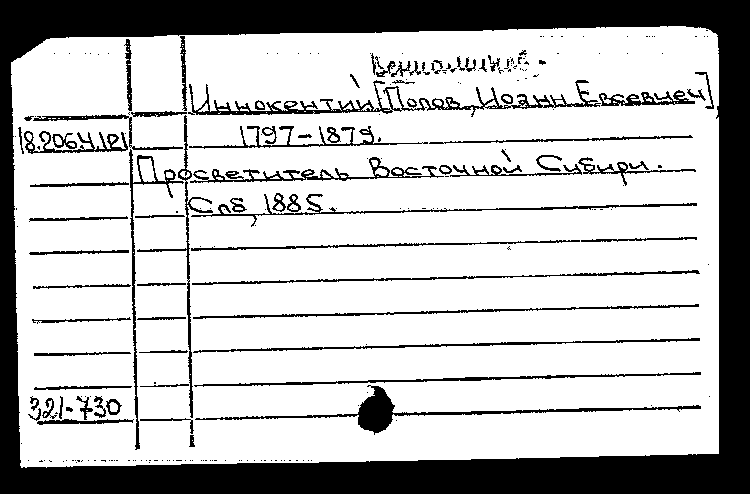 Вениаминов.
Иннокентий [Попов, Иоанн Евсевиеч],
1797-1879.
18.206.4.121
Просветитель Восточной Сибири.
Спб, 1885.
321-730